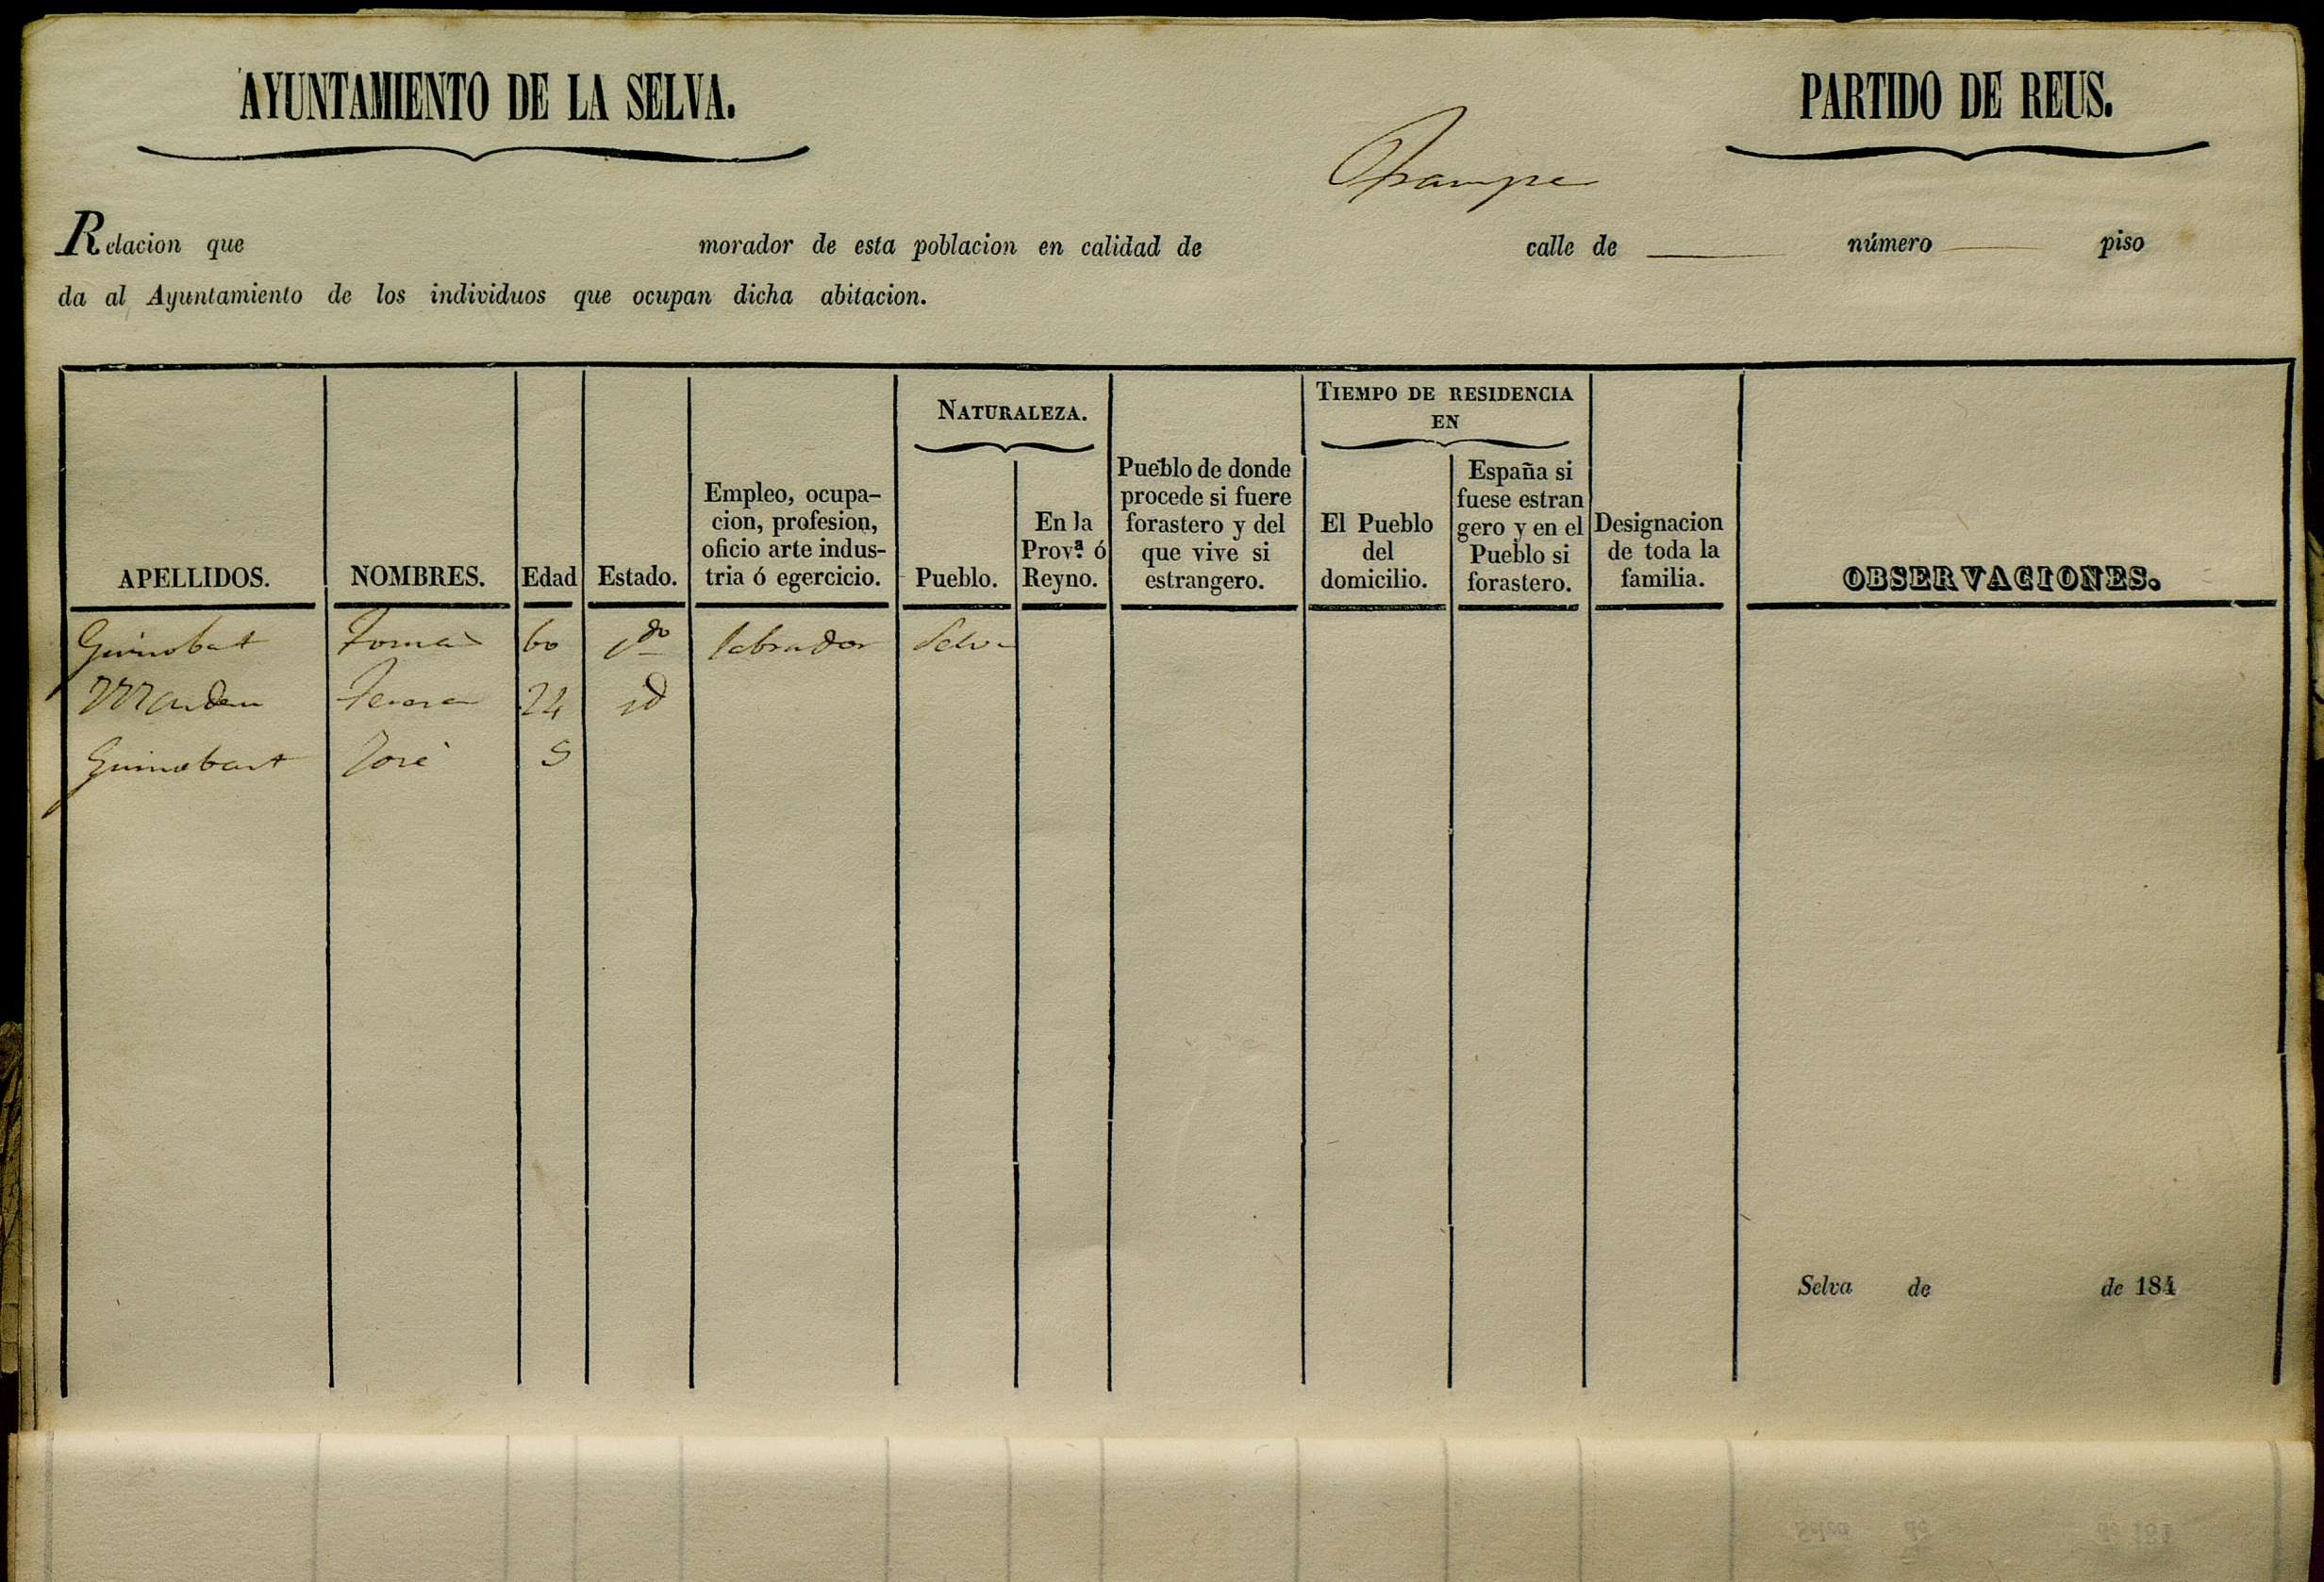 AYUNTAMIENTO DE LA SELVA.
PARTIDO DE REUS.
Relacion que morador de esta poblacion en calidad de calle de número piso
da al Ayuntamiento de los individuos que ocupan dicha abitacion.
NATURALEZA.
TIEMPO DE RESIDENCIA
EN
APELLIDOS.
NOMBRES.
Edad
Estado.
Empleo, ocupa-
cion, profesion,
oficio arte indus-
tria ó egercicio.
Pueblo.
En la
Prov.ª ó
Reyno.
Pueblo de donde
procede si fuere
forastero y del
que vive si
estrangero.
El Pueblo
del
domicilio.
España si
fuese estran
gero y en el
Pueblo si
forastero.
Designacion
de toda la
familia.
OBSERVACIONES.
Guinobart Tomàs 60 labrador Selva
Teresa 24 id
Guinobart José 5
Selva de de 184